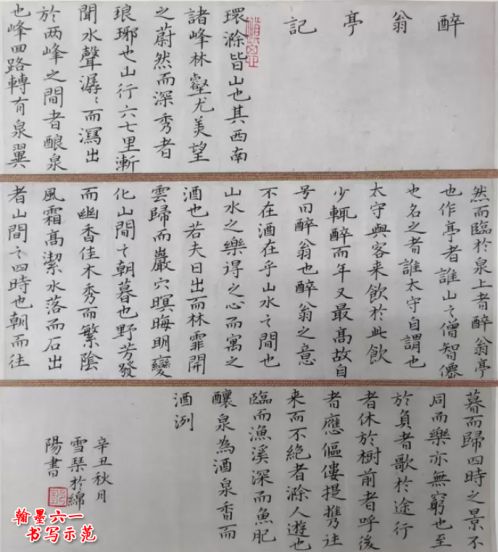 醉翁亭記
環滁皆山也其西南
諸峰林壑尤美望
之蔚然而深秀者
琅琊也山行六七里漸
聞水聲潺々而瀉出
於兩峰之間者釀泉
也峰回路轉有泉翼
然而臨於泉上者醉翁亭
也作亭者誰山之僧智僊
也名之者誰太守自謂也
太守與客来飲於此飲
少輒醉而年又最高故自
号曰醉翁也醉翁之意
不在酒在乎山水之間也
山水之樂得之心而寓之
酒也若夫日出而林霏開
雲歸而巖穴暝晦明變
化山間之朝暮也野芳發
而幽香佳木秀而繁陰
風霜高潔水落而石出
者山間之四時也朝而往
暮而歸四時之景不
同而樂亦無窮也至
於負者歌於途行
者休於樹前者呼後
者應傴僂提攜往
来而不絕者滁人遊也
臨而漁溪深而魚肥
釀泉為酒泉香而
酒洌
辛丑秋月
雪琹於綿
陽書
翰墨六一
书写示范